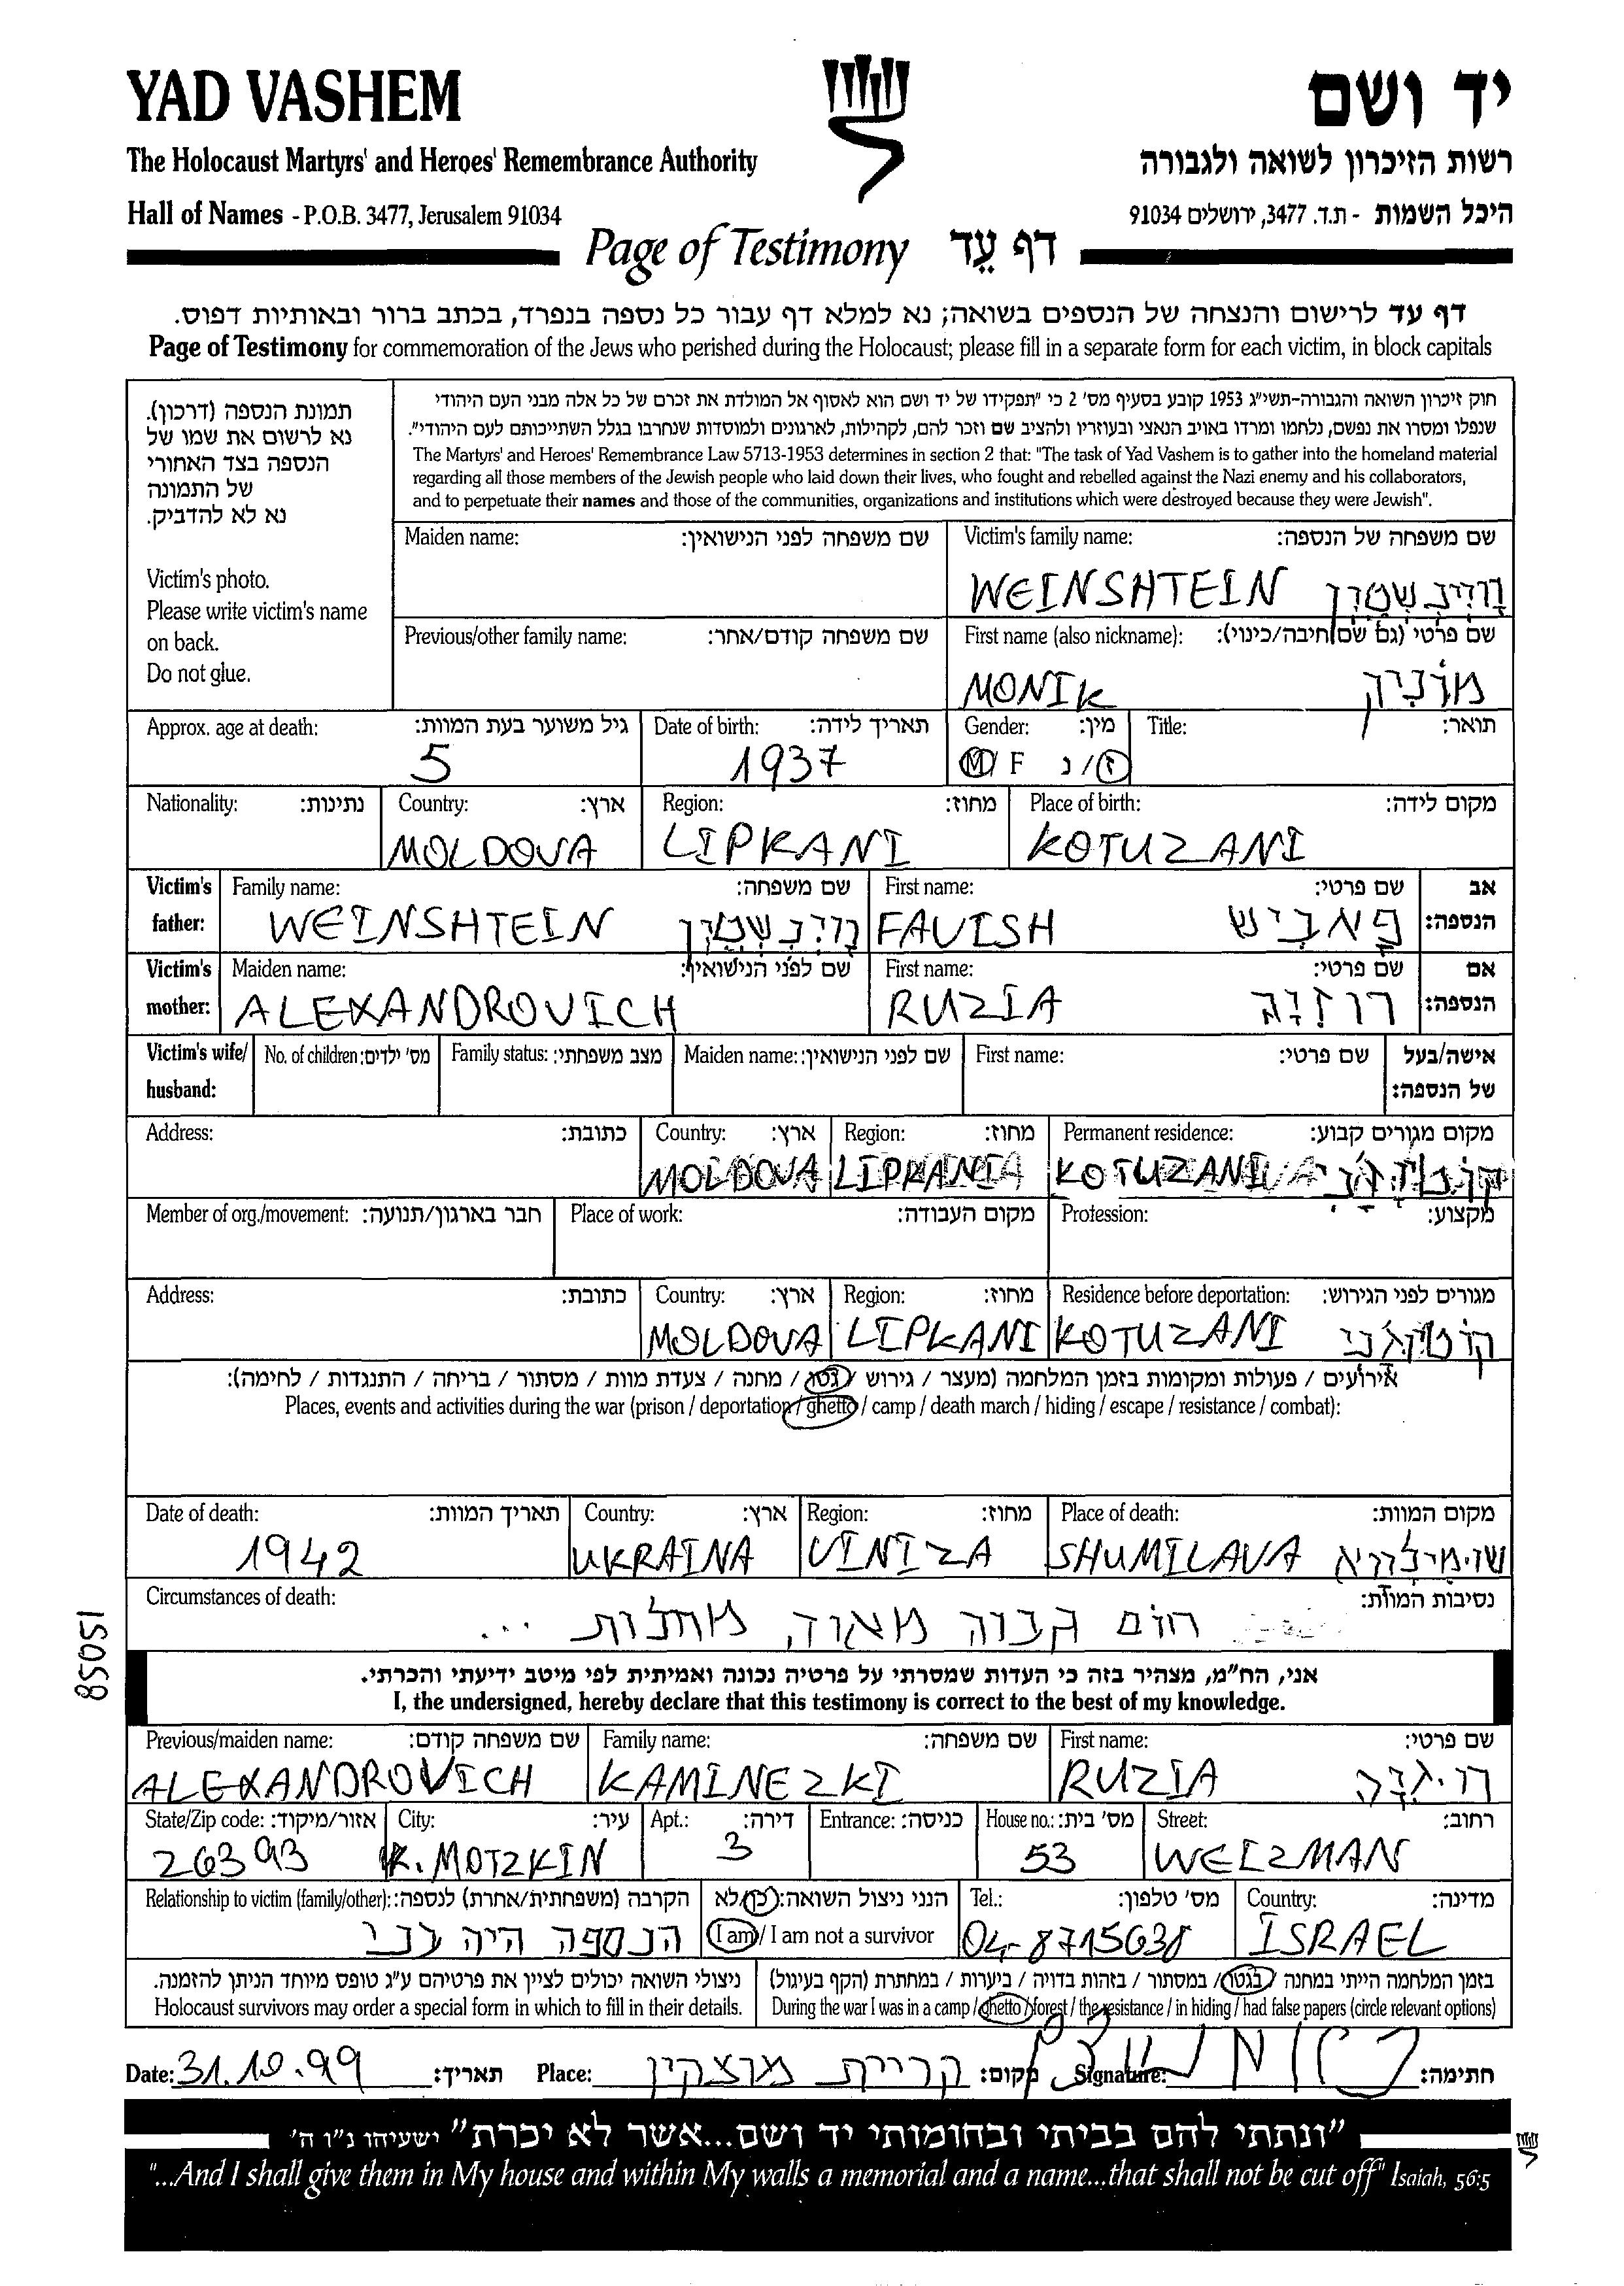 YAD VASHEM
יד ושם
The Holocaust Martyrs' and Heroes' Remembrance Authority
רשות הזיכרון לשואה ולגבורה
Hall of Names - P.O.B. 3477, Jerusalem 91034
היכל השמות - ת.ד. 3477, ירושלים 91034
Page of Testimony דף עֵד
דף עד לרישום והנצחה של הנספים בשואה; נא למלא דף עבור כל נספה בנפרד, בכתב ברור ובאותיות דפוס.
Page of Testimony for commemoration of the Jews who perished during the Holocaust; please fill in a separate form for each victim, in block capitals
תמונת הנספה (דרכון).
נא לרשום את שמו של
הנספה בצד האחורי
של התמונה
נא לא להדביק.
Victim's photo.
Please write victim's name
on back.
Do not glue.
חוק זיכרון השואה והגבורה-תשי"ג 1953 קובע בסעיף מס' 2 כי "תפקידו של יד ושם הוא לאסוף אל המולדת את זכרם של כל אלה מבני העם היהודי
שנפלו ומסרו את נפשם, נלחמו ומרדו באויב הנאצי ובעוזריו ולהציב שם וזכר להם, לקהילות, לארגונים ולמוסדות שנחרבו בגלל השתייכותם לעם היהודי".
The Martyrs' and Heroes' Remembrance Law 5713-1953 determines in section 2 that: "The task of Yad Vashem is to gather into the homeland material
regarding all those members of the Jewish people who laid down their lives, who fought and rebelled against the Nazi enemy and his collaborators,
and to perpetuate their names and those of the communities, organizations and institutions which were destroyed because they were Jewish".
Maiden name: שם משפחה לפני הנישואין:
Victim's family name: שם משפחה של הנספה:
WEINSHTEIN
Previous/other family name: שם משפחה קודם/אחר:
First name (also nickname): שם פרטי (גם שם חיבה/כינוי):
MONIK מוֹנִיק
Approx. age at death: גיל משוער בעת המוות:
5
Date of birth: תאריך לידה:
1937
Gender: מין:
M/ F ז/ נ
Title: תואר:
Nationality: נתינות:
Country: ארץ:
MOLDOVA
Region: מחוז:
LIPKANI
Place of birth: מקום לידה:
KOTUZANI
Victim's father: Family name: שם משפחה:
WEINSHTEIN
First name: שם פרטי:
FAVISH פאביש
אב הנספה:
Victim's mother: Maiden name: שם לפני הנישואין:
ALEXANDROVICH
First name: שם פרטי:
RUZIA רוזיה
אם הנספה:
Victim's wife/ husband: No. of children: מס' ילדים:
Family status: מצב משפחתי:
Maiden name: שם לפני הנישואין:
First name: שם פרטי:
אישה/בעל של הנספה:
Address: כתובת:
Country: ארץ:
MOLDOVA
Region: מחוז:
LIPKANI
Permanent residence: מקום מגורים קבוע:
KOTUZANI
Member of org./movement: חבר בארגון/תנועה:
Place of work: מקום העבודה:
Profession: מקצוע:
Address: כתובת:
Country: ארץ:
MOLDOVA
Region: מחוז:
LIPKANI
Residence before deportation: מגורים לפני הגירוש:
KOTUZANI
אירועים / פעולות ומקומות בזמן המלחמה (מעצר / גירוש / גטו / מחנה / צעדת מוות / מסתור / בריחה / התנגדות / לחימה):
Places, events and activities during the war (prison / deportation / ghetto / camp / death march / hiding / escape / resistance / combat):
Date of death: תאריך המוות:
1942
Country: ארץ:
UKRAINA
Region: מחוז:
VINIZA
Place of death: מקום המוות:
SHUMILAVA שומילווא
Circumstances of death: נסיבות המוות:
חום גבוה מאוד, מחלות ...
אני, הח"מ, מצהיר בזה כי העדות שמסרתי על פרטיה נכונה ואמיתית לפי מיטב ידיעתי והכרתי.
I, the undersigned, hereby declare that this testimony is correct to the best of my knowledge.
85051
Previous/maiden name: שם משפחה קודם:
ALEXANDROVICH
Family name: שם משפחה:
KAMINEZKI
First name: שם פרטי:
RUZIA רוזיה
State/Zip code: אזור/מיקוד:
26393
City: עיר:
K. MOTZKIN
Apt.: דירה:
3
Entrance: כניסה:
House no.: מס' בית:
53
Street: רחוב:
WEIZMAN
Relationship to victim (family/other): הקרבה (משפחתית/אחרת) לנספה:
הנספה היה בני
הנני ניצול השואה: כן/לא
I am/ I am not a survivor
Tel.: מס' טלפון:
04-8715638
Country: מדינה:
ISRAEL
ניצולי השואה יכולים לציין את פרטיהם ע"ג טופס מיוחד הניתן להזמנה.
Holocaust survivors may order a special form in which to fill in their details.
בזמן המלחמה הייתי במחנה / בגטו/ במסתור / בזהות בדויה / ביערות / במחתרת (הקף בעיגול)
During the war I was in a camp / ghetto / forest / the resistance / in hiding / had false papers (circle relevant options)
Date: 31.10.99 תאריך: Place: קריית מוצקין מקום: Signature: חתימה:
"ונתתי להם בביתי ובחומותי יד ושם...אשר לא יכרת" ישעיהו נ"ו ה'
"...And I shall give them in My house and within My walls a memorial and a name...that shall not be cut off" Isaiah, 56:5